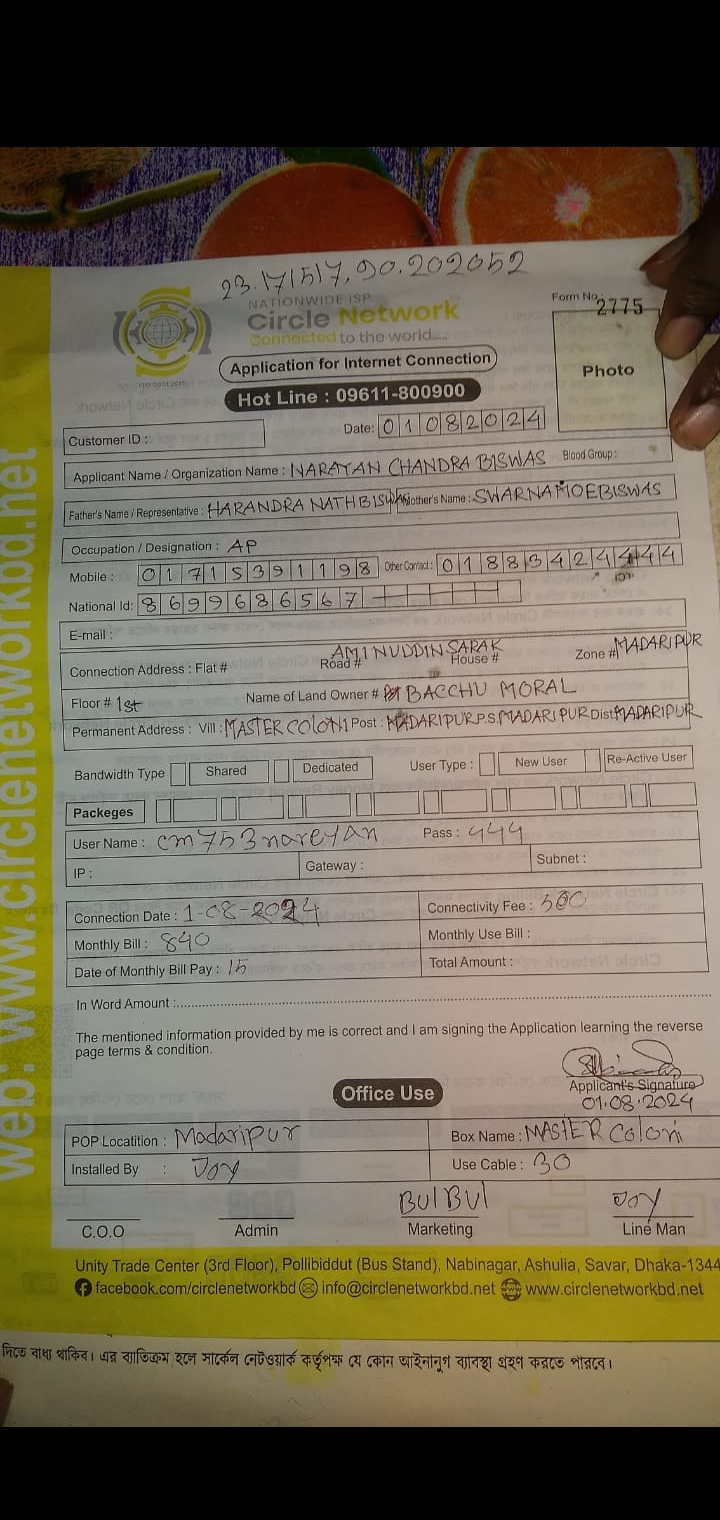 23.17/5/7,90.202052
NATIONWIDE ISP
Circle Network
Connected to the world.....
Form No. 2775
Photo
Application for Internet Connection
Hot Line : 09611-800900
Customer ID :
Date: 01082024
Applicant Name / Organization Name : NARAYAN CHANDRA BISWAS Blood Group :
Father's Name / Representative : HARANDRA NATH BISWAS Mother's Name : SWARNAMOEBISWAS
Occupation / Designation : AP
Mobile : 01715391198 Other Contact : 01883424444
National Id: 8699686567
E-mail :
Connection Address : Flat # Road # AMINUDDIN SARAK House # Zone # MADARIPUR
Floor # 1st Name of Land Owner # BACCHU MORAL
Permanent Address : Vill : MASTER COLONI Post : MADARIPUR P.S. MADARIPUR Dist MADARIPUR
Bandwidth Type Shared Dedicated User Type : New User Re-Active User
Packeges
User Name : cm753nareyan Pass : 444
IP : Gateway : Subnet :
Connection Date : 1-08-2024 Connectivity Fee : 500
Monthly Bill : 840 Monthly Use Bill :
Date of Monthly Bill Pay : 15 Total Amount :
In Word Amount :
The mentioned information provided by me is correct and I am signing the Application learning the reverse
page terms & condition.
Applicant's Signature
01.08.2024
Office Use
POP Locatition : Madaripur Box Name : MASTER Coloni
Installed By : Joy Use Cable : 30
BulBul Joy
C.O.O Admin Marketing Line Man
Unity Trade Center (3rd Floor), Pollibiddut (Bus Stand), Nabinagar, Ashulia, Savar, Dhaka-1344
facebook.com/circlenetworkbd info@circlenetworkbd.net www.circlenetworkbd.net
web: www.circlenetworkbd.net
দিতে বাধ্য থাকিব। এর ব্যতিক্রম হলে সার্কেল নেটওয়ার্ক কর্তৃপক্ষ যে কোন আইনানুগ ব্যবস্থা গ্রহণ করতে পারবে।